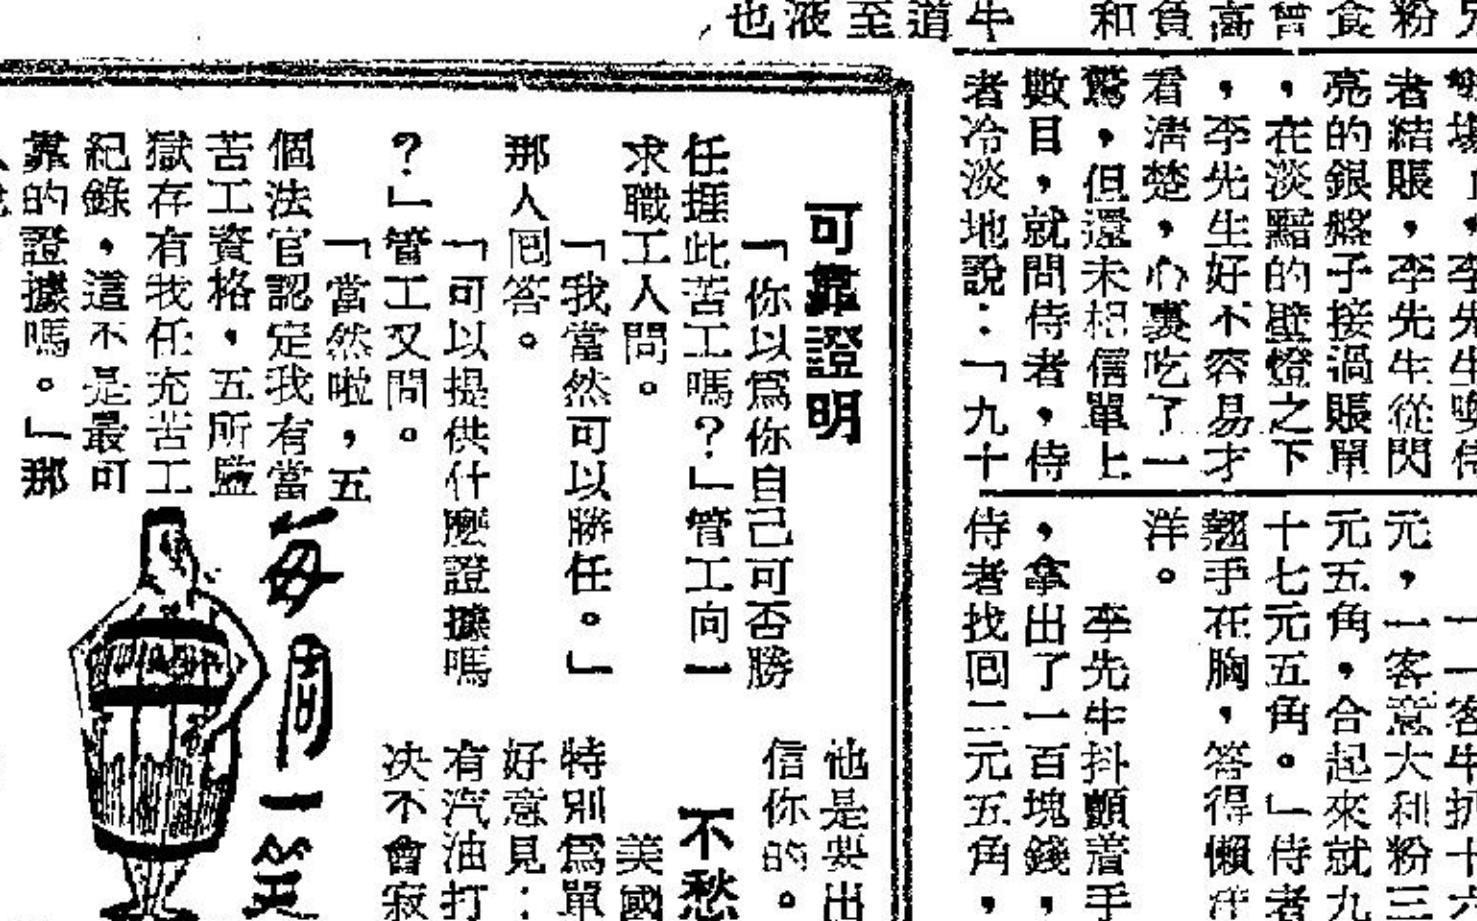 粉
食
曾
高
負
和
牛
道
至
液
也
，李先生喚侍
者結賬，李先生從閃
亮的銀盤子接過賬單
，在淡黯的壁燈之下
，李先生好不容易才
看清楚，心裏吃了一
驚，但還未相信單上
數目，就問侍者，侍
者冷淡地說：「九十
一一客牛扒十六
元，一客意大利粉三
元五角，合起來就九
十七元五角。」侍者
翹手在胸，答得懶
洋。
李先生抖顫着手
，拿出了一百塊錢，
侍者找囘二元五角，
可靠證明
「你以爲你自己可否勝
任捱此苦工嗎？」管工向一
求職工人問。
「我當然可以勝任。」
那人囘答。
「可以提供什麽證據嗎
？」管工又問。
「當然啦，五
個法官認定我有當
苦工資格，五所監
獄存有我任充苦工
紀錄，這不是最可
靠的證據嗎。」那
每周一笑
他是要出
信你的。
不愁
美國
特別爲單
好意見：
有汽油打
决不會寂